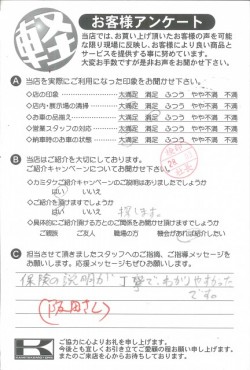 軽
お客様アンケート
当店では、お買い上げ頂いたお客様の声を可能
な限り現場に反映し、お客様により良い商品と
サービスを提供する事に努めています。
大変お手数ですが是非お声をお聞かせ下さい。
A 当店を実際にご利用になった印象をお聞かせ下さい。
◇店の印象 大満足 満足 ふつう やや不満 不満
◇店内・展示場の清掃 大満足 満足 ふつう やや不満 不満
◇お車の品揃え 大満足 満足 ふつう やや不満 不満
◇営業スタッフの対応 大満足 満足 ふつう やや不満 不満
◇納車時のお車の状態 大満足 満足 ふつう やや不満 不満
B 当店はご紹介を大切にしております。
ご紹介キャンペーンについてお聞かせ下さい。
◇カミタケご紹介キャンペーンのご説明はありましたでしょうか
はい いいえ
◇ご紹介を頂けますでしょうか
はい いいえ 探します。
◇具体的にご紹介頂ける方とのご関係をお聞かせ頂けますでしょうか
ご親族 ご友人 職場の方 機会があれば紹介したい
C 担当させて頂きましたスタッフへのご指摘、ご指導メッセージを
お願いします。応援メッセージもぜひお願いします。
保険の説明が丁寧でわかりやすかった
です。
(阪田さん)
K
ご協力に心よりお礼を申し上げます。
今後とも宜しくお引き立てご愛顧の程お願い申し上げます。
またのご来店を心からお待ちしております。